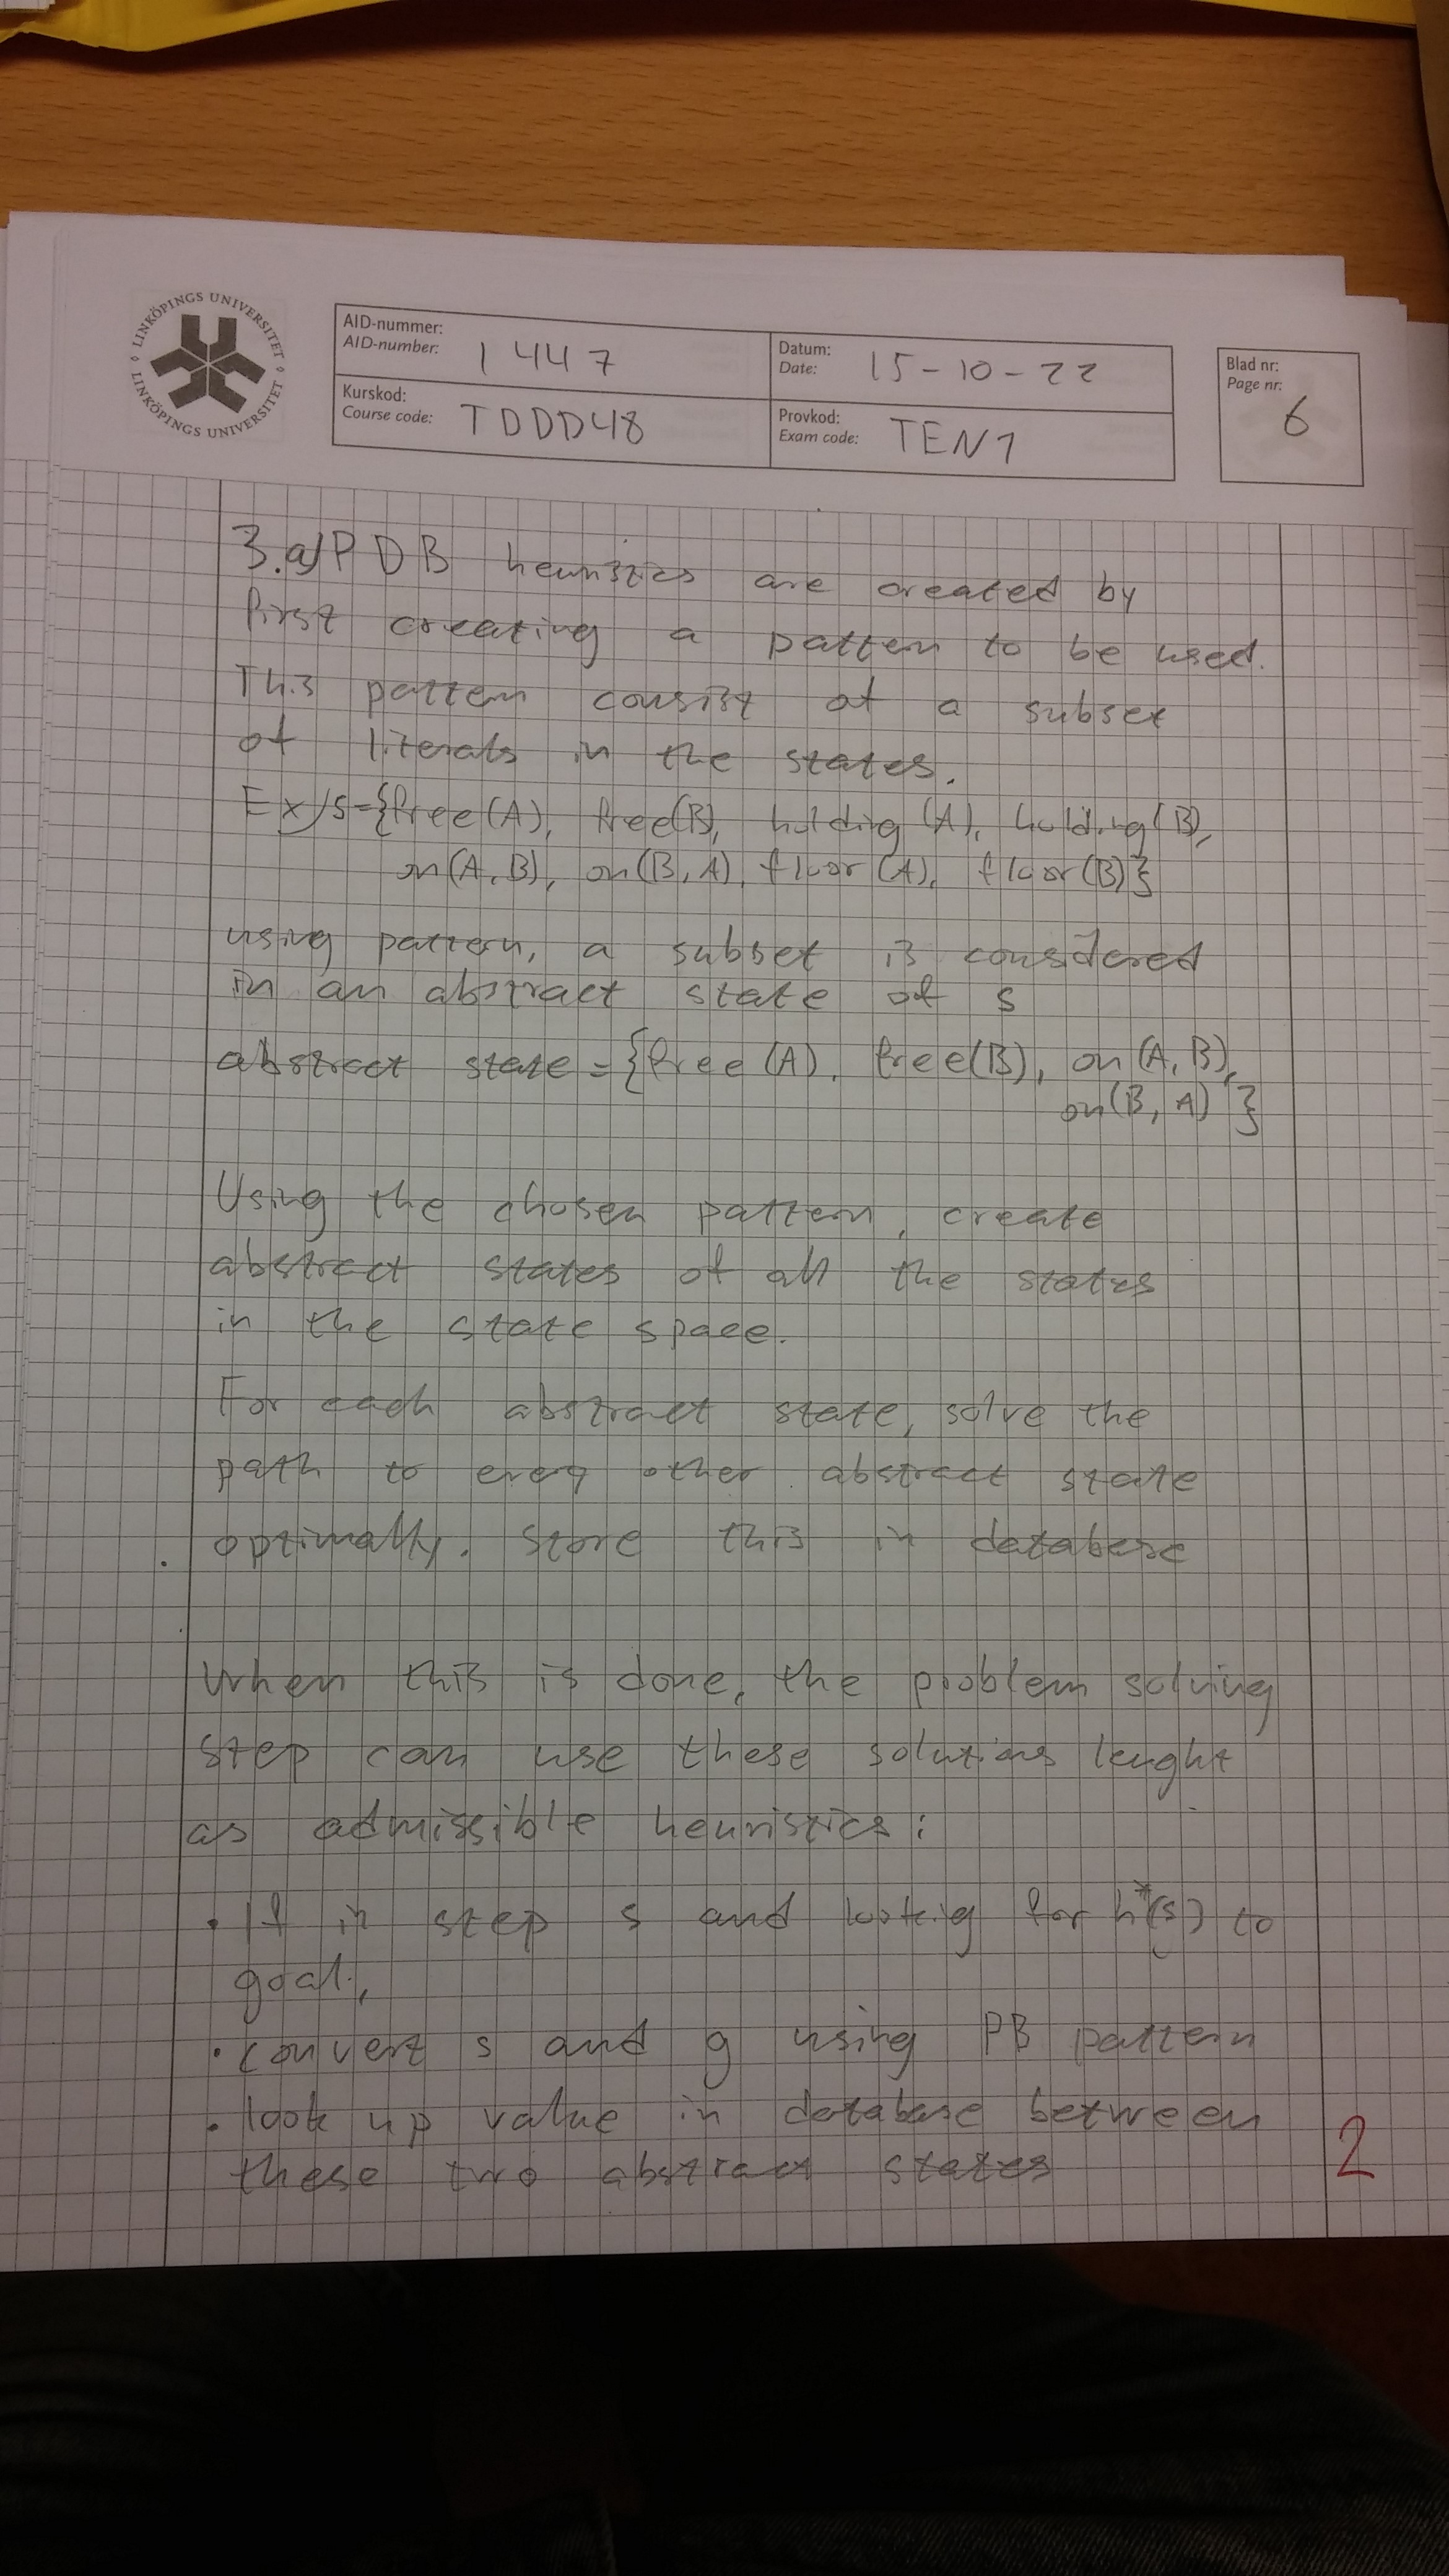 LINKÖPINGS UNIVERSITET
LINKÖPINGS UNIVERSITET
AID-nummer:
AID-number: 1447
Datum:
Date: 15-10-22
Blad nr:
Page nr:
6
Kurskod:
Course code: TDDD48
Provkod:
Exam code: TEN1
3.a) PDB heuristics are created by
first creating a pattern to be used.
This pattern consist of a subset
of literals in the states.
Ex/ s={free(A), free(B), holding(A), holding(B),
on(A,B), on(B,A), floor(A), floor(B)}
using pattern, a subset is considered
in an abstract state of s
abstract state = {free(A), free(B), on(A,B),
on(B,A)}
Using the chosen pattern, create
abstract states of all the states
in the state space.
For each abstract state, solve the
path to every other abstract state
optimally. Store this in database
When this is done, the problem solving
step can use these solutions lenght
as admissible heuristics:
• If in step s and looking for h*(s) to
goal,
• convert s and g using PB pattern
• look up value in database between
these two abstract states
2